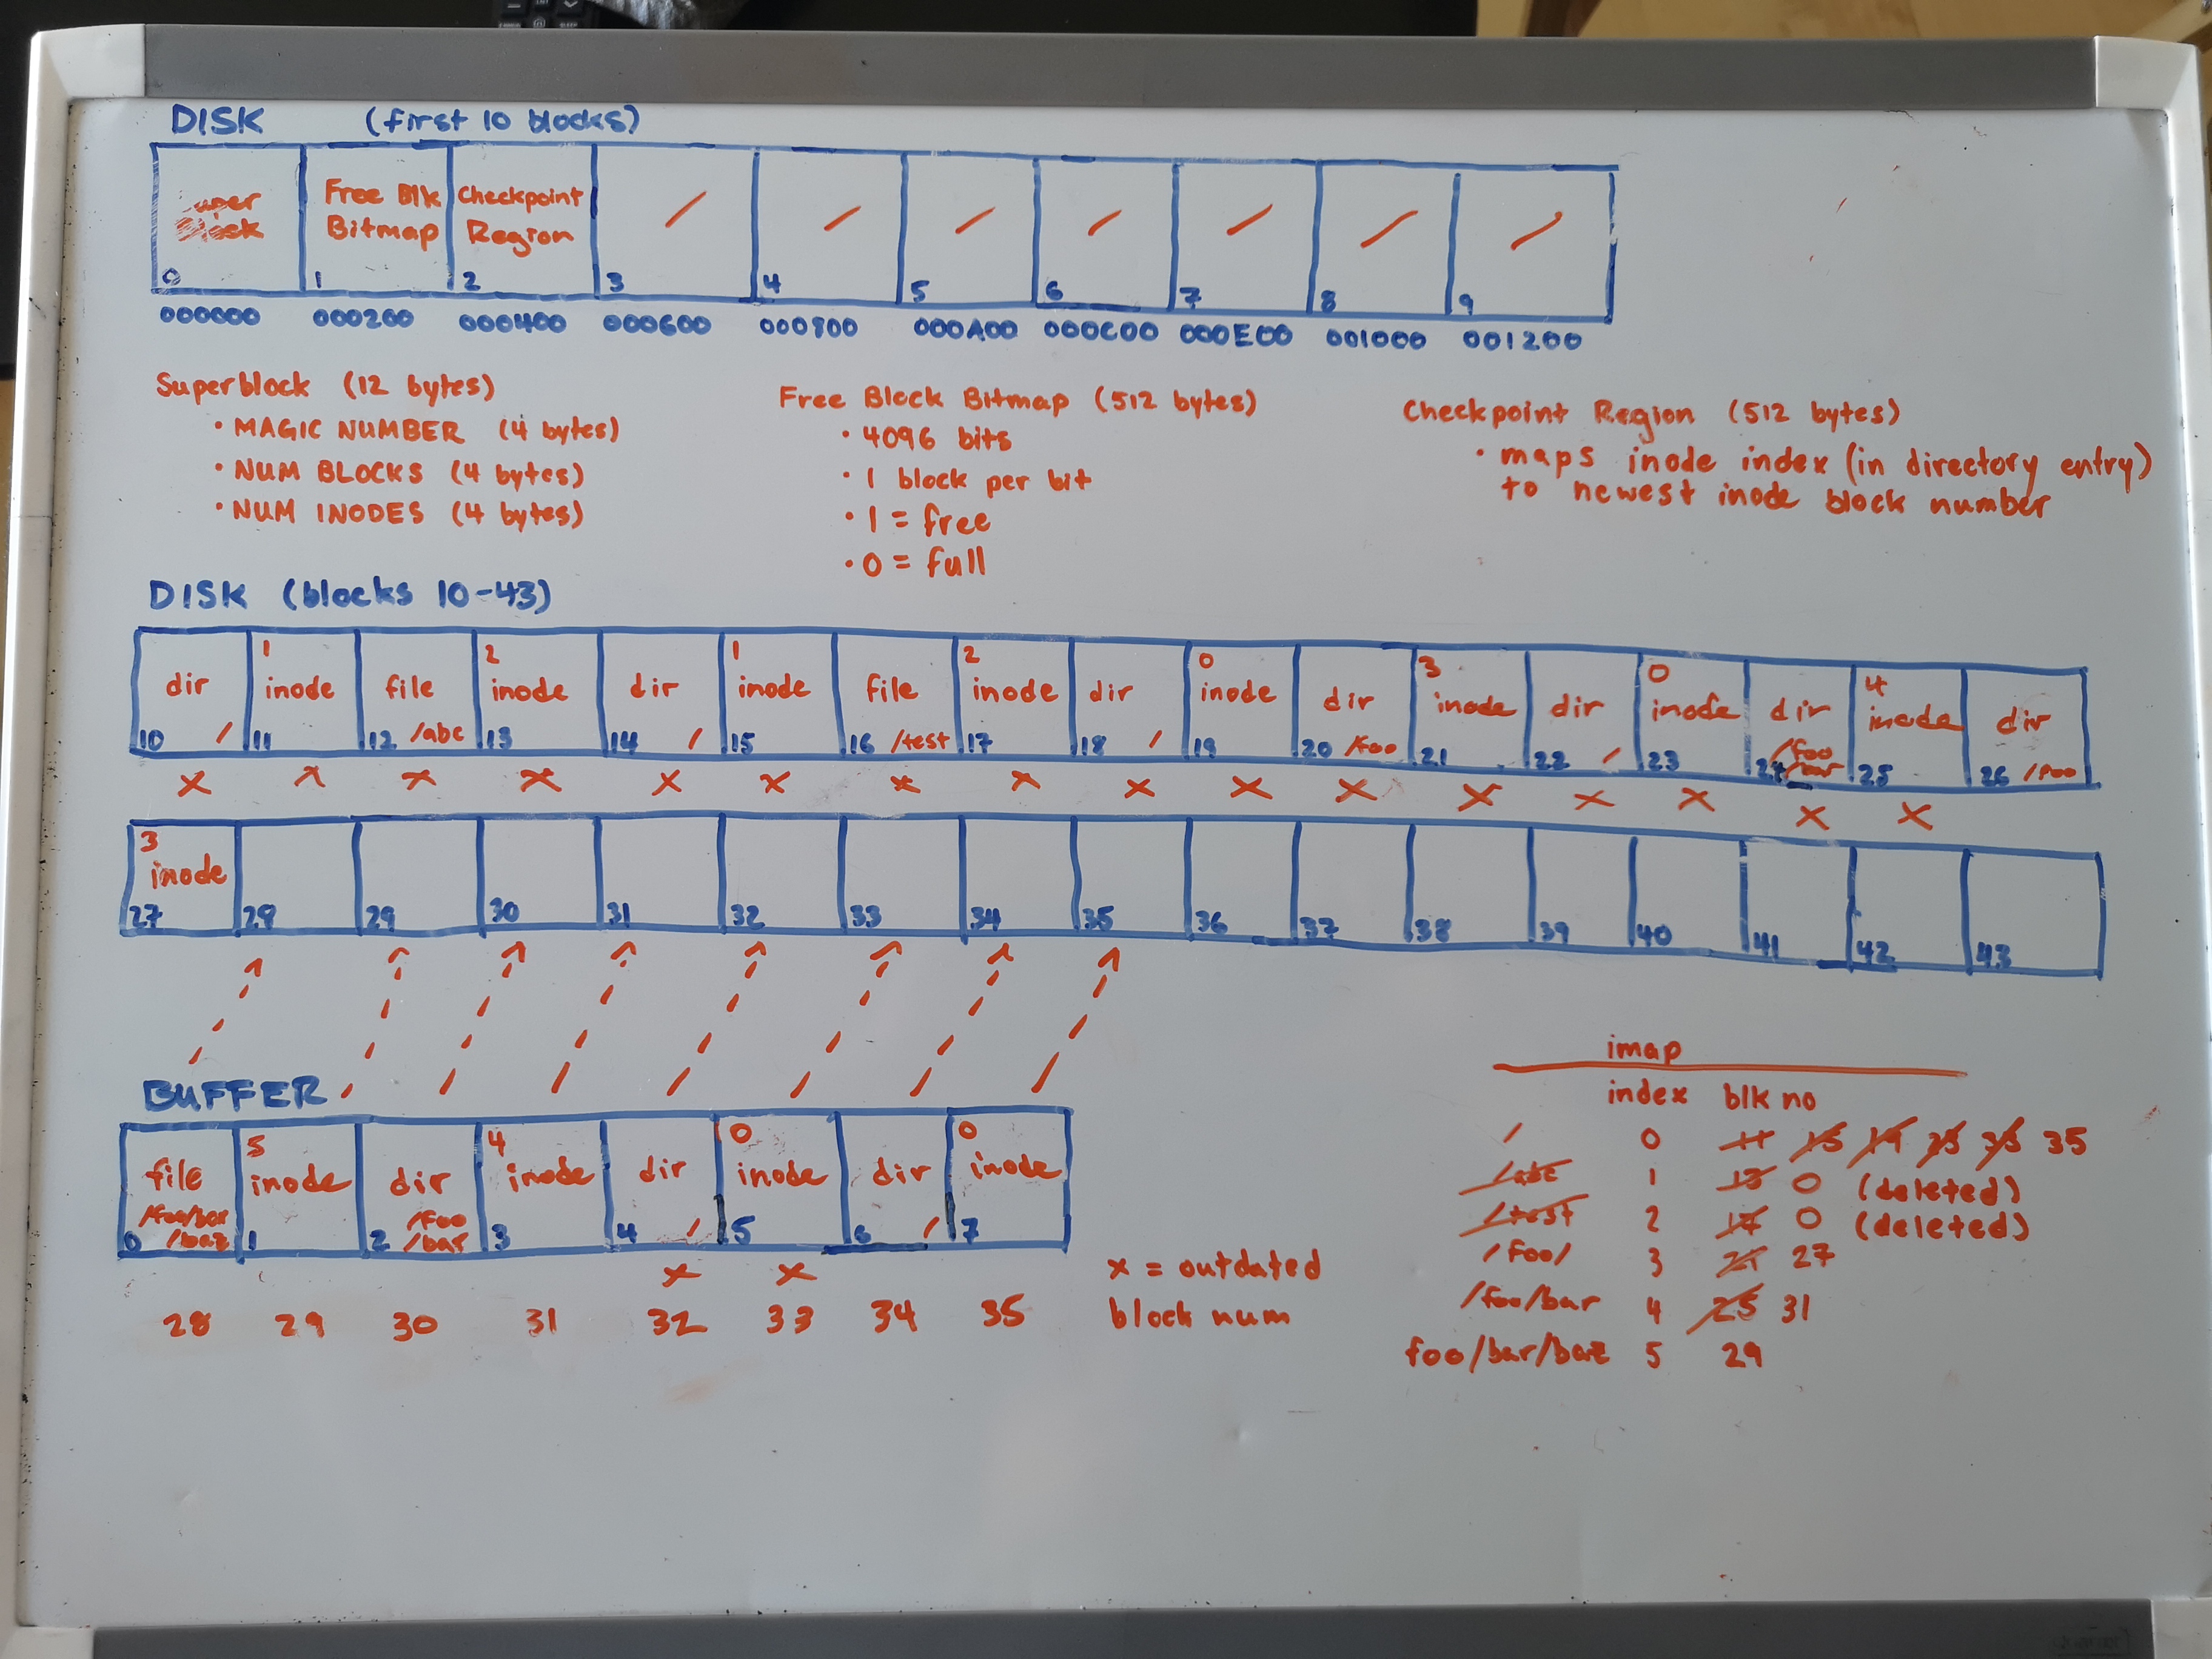 DISK (first 10 blocks)
Super Block
Free Blk Bitmap
Checkpoint Region
/ / / / / / /
0 1 2 3 4 5 6 7 8 9
000000 000200 000400 000600 000800 000A00 000C00 000E00 001000 001200
Superblock (12 bytes)
• MAGIC NUMBER (4 bytes)
• NUM BLOCKS (4 bytes)
• NUM INODES (4 bytes)
Free Block Bitmap (512 bytes)
• 4096 bits
• 1 block per bit
• 1 = free
• 0 = full
Checkpoint Region (512 bytes)
• maps inode index (in directory entry)
to newest inode block number
DISK (blocks 10-43)
1 2 1 2 0 3 0 4
dir inode file inode dir inode file inode dir inode dir inode dir inode dir inode dir
10 / 11 12 /abc 13 14 / 15 16 /test 17 18 / 19 20 /foo 21 22 / 23 24 /foo /bar 25 26 /foo
x x x x x x x x x x x x x x x x
3
inode
27 28 29 30 31 32 33 34 35 36 37 38 39 40 41 42 43
BUFFER
5 4 0 0
file inode dir inode dir inode dir inode
/foo/bar /foo
0 /baz 1 2 /bar 3 4 / 5 6 / 7
x x
28 29 30 31 32 33 34 35
x = outdated
block num
imap
index blk no
/ 0 11 15 19 35
/abc 1 13 0 (deleted)
/test 2 17 0 (deleted)
/foo/ 3 21 27
/foo/bar 4 25 31
foo/bar/baz 5 29